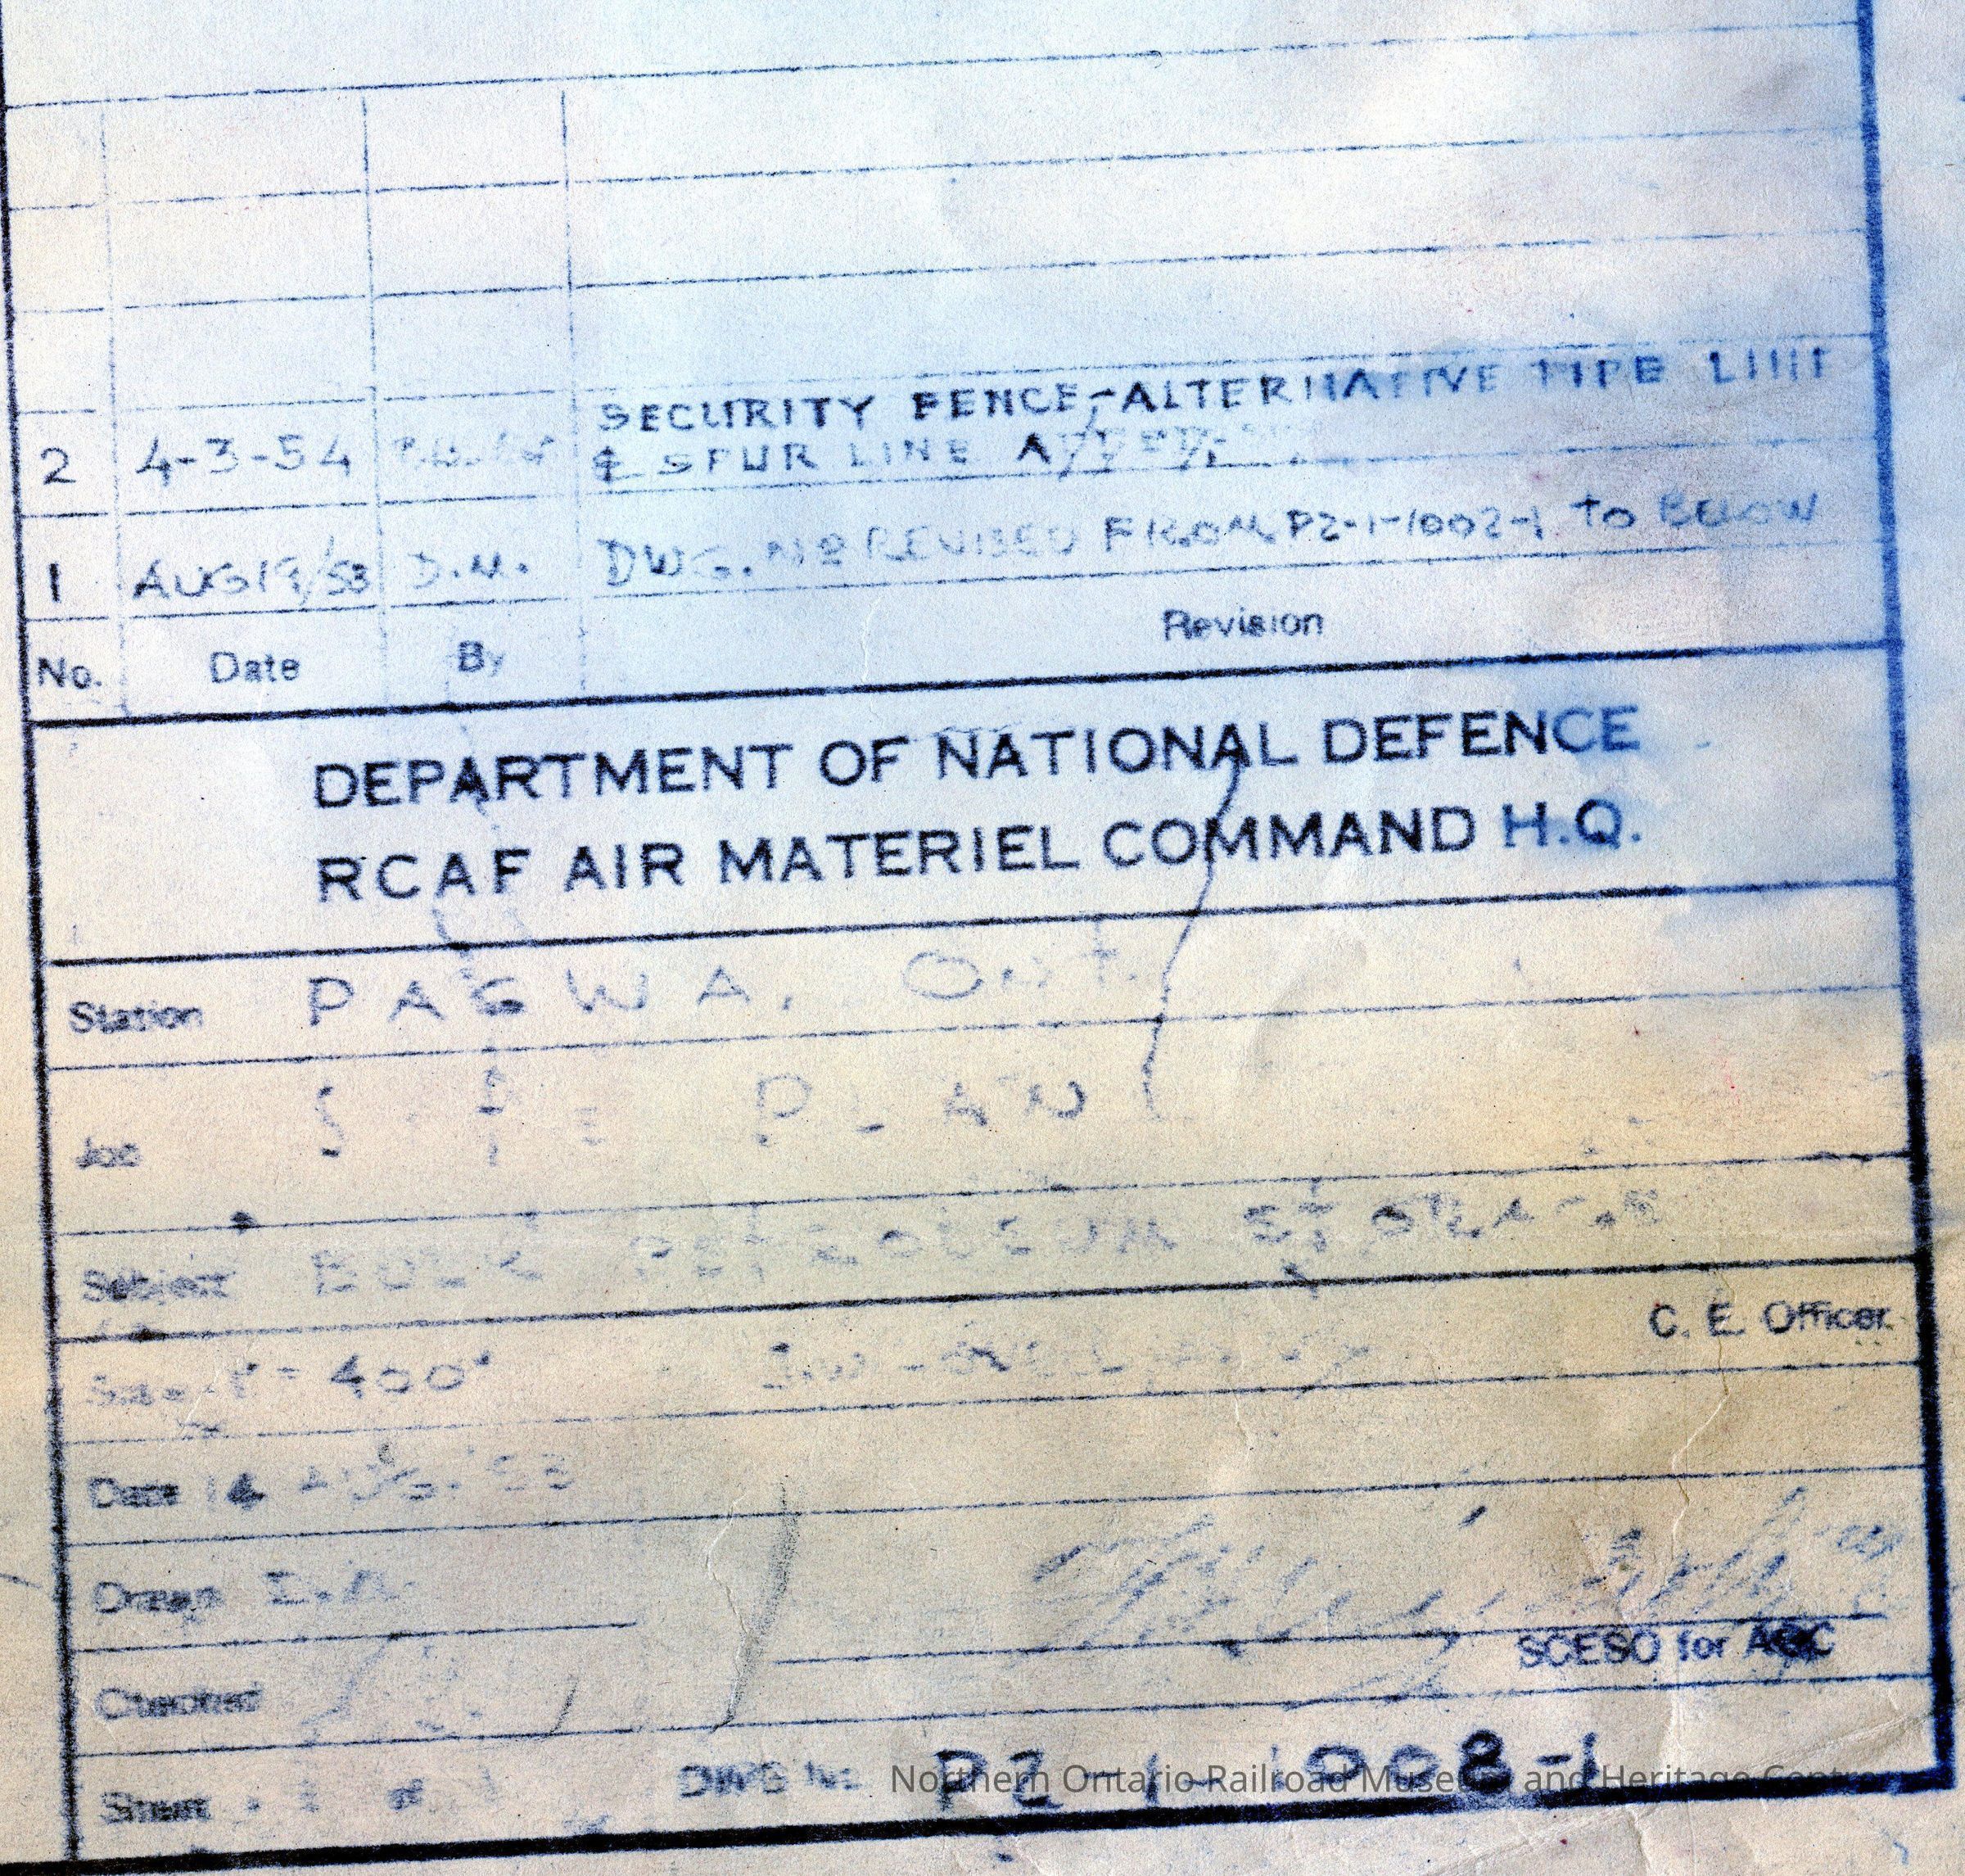 2 4-3-54 SECURITY FENCE-ALTERNATIVE PIPE LINE
& SPUR LINE
1 AUG 19/53 D.M. DWG. Nº REVISED FROM PZ-1-1002-1 to BELOW
No. Date By Revision
DEPARTMENT OF NATIONAL DEFENCE
RCAF AIR MATERIEL COMMAND H.Q.
Station PAGWA. ONT.
Job SITE PLAN
Subject BULK PETROLEUM STORAGE
C. E. Officer
Scale 1" = 400'
Date 14 AUG. '53
Drawn D.M.
SCESO for AOC
Checked
Sheet 1 of 1 DWG No. PZ-1-1008-1
Northern Ontario Railroad Museum and Heritage Centre